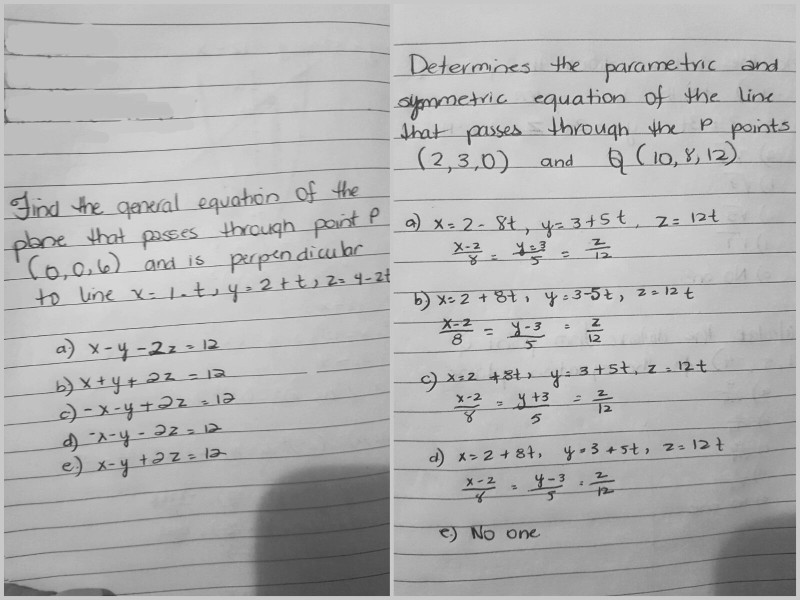 Find the general equation of the
plane that passes through point P
(0,0,6) and is perpendicular
to line x = 1 - t, y = 2 + t, z = 4 - 2t
a) x - y - 2z = 12
b) x + y + 2z = 12
c) -x - y + 2z = 12
d) -x - y - 2z = 12
e) x - y + 2z = 12
Determines the parametric and
symmetric equation of the line
that passes through the P points
(2,3,0) and Q (10,8,12)
a) x = 2 - 8t, y = 3 + 5t, z = 12t
x-2/8 = y-3/5 = z/12
b) x = 2 + 8t, y = 3-5t, z = 12t
x-2/8 = y-3/5 = z/12
c) x = 2 + 8t, y = 3 + 5t, z = 12t
x-2/8 = y+3/5 = z/12
d) x = 2 + 8t, y = 3 + 5t, z = 12t
x-2/8 = y-3/5 = z/12
e) No one